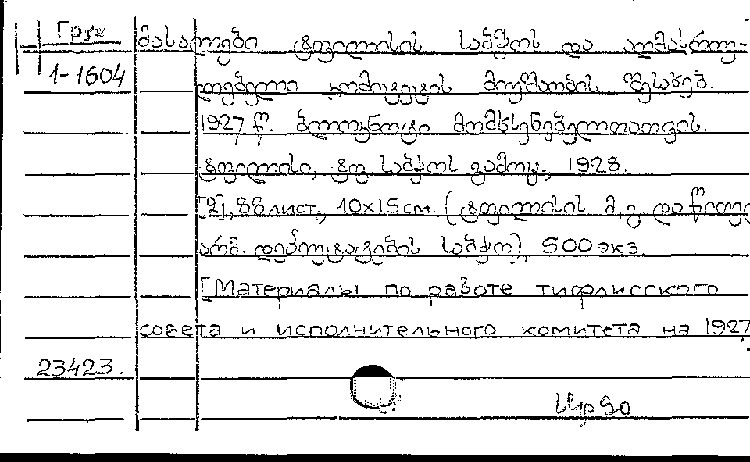 Груз
1-1604
მასალები ტფილისის საბჭოს და აღმასრუ-
ლებელი კომიტეტის მუშაობის შესახებ.
1927 წ. ბლოკნოტი მომხსენებელთათვის.
ტფილისი, ტფ. საბჭოს გამოც., 1928.
[2], 88 лист., 10x15 см. (ტფილისის მ., გ. და წითელ
არმ. დეპუტატების საბჭო), 500 экз.
[Материалы по работе тифлисского
совета и исполнительного комитета на 1927
23423.